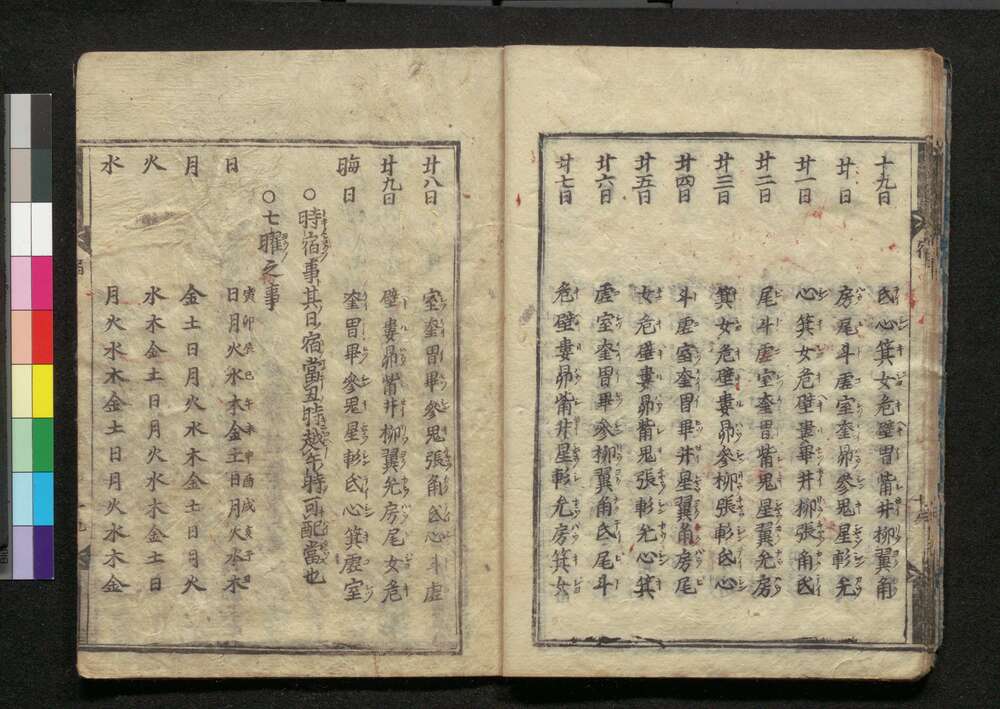 十九日 氐心箕女危壁胃觜井柳翼角
廿日 房尾斗虛室奎昴參鬼星軫亢
廿一日 心箕女危壁婁畢井柳張角氐
廿二日 尾斗虛室奎胃觜鬼星翼亢房
廿三日 箕女危壁婁昴參柳張軫氐心
廿四日 斗虛室奎胃畢井星翼角房尾
廿五日 女危壁婁昴觜鬼張軫亢心箕
廿六日 虛室奎胃畢參柳翼角氐尾斗
廿七日 危壁婁昴觜井星軫亢房箕女
廿八日 室奎胃畢參鬼張角氐心斗虛
廿九日 壁婁昴觜井柳翼亢房尾女危
晦日 奎胃畢參鬼星軫氐心箕虛室
○時宿事其日宿當丑時越午時可配當也
○七曜之事
寅卯辰巳午未申酉戌亥子丑
日 日月火水木金土日月火水木
月 金土日月火水木金土日月火
火 水木金土日月火水木金土日
水 月火水木金土日月火水木金